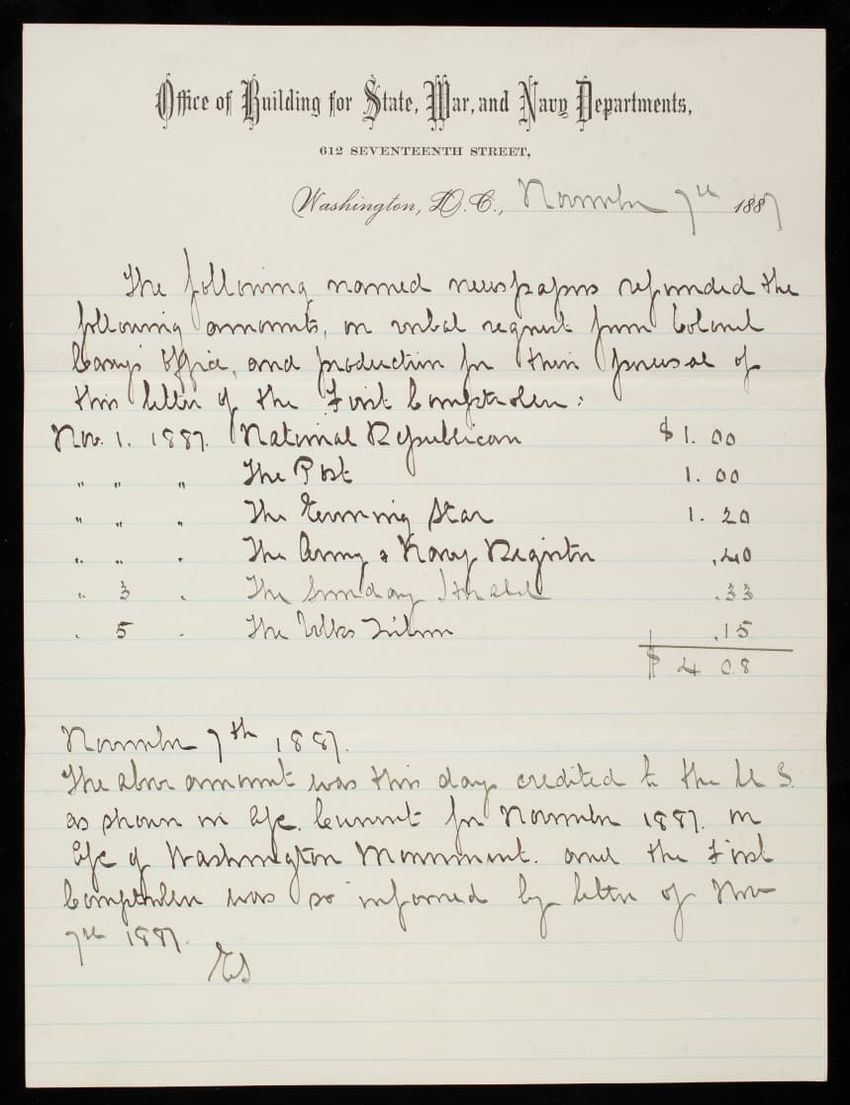 Office of Building for State, War, and Navy Departments,
612 SEVENTEENTH STREET,
Washington, D.C., November 7th 1887
The following named newspapers refunded the
following amounts, on verbal request from Colonel
Casey's Office, and production for their perusal of
this letter of the First Comptroller:
Nov. 1. 1887. National Republican $1.00
" " " The Post 1.00
" " " The Evening Star 1.20
" " " The Army & Navy Register .40
" 3 " The Sunday Herald .33
" 5 " The Volks Tribune .15
$4 08
November 7th 1887.
The above amount was this day credited to the U S.
as shown in a/c. Current for November 1887. on
a/c of Washington Monument. and the First
Comptroller was so informed by letter of Nov
7th 1887.